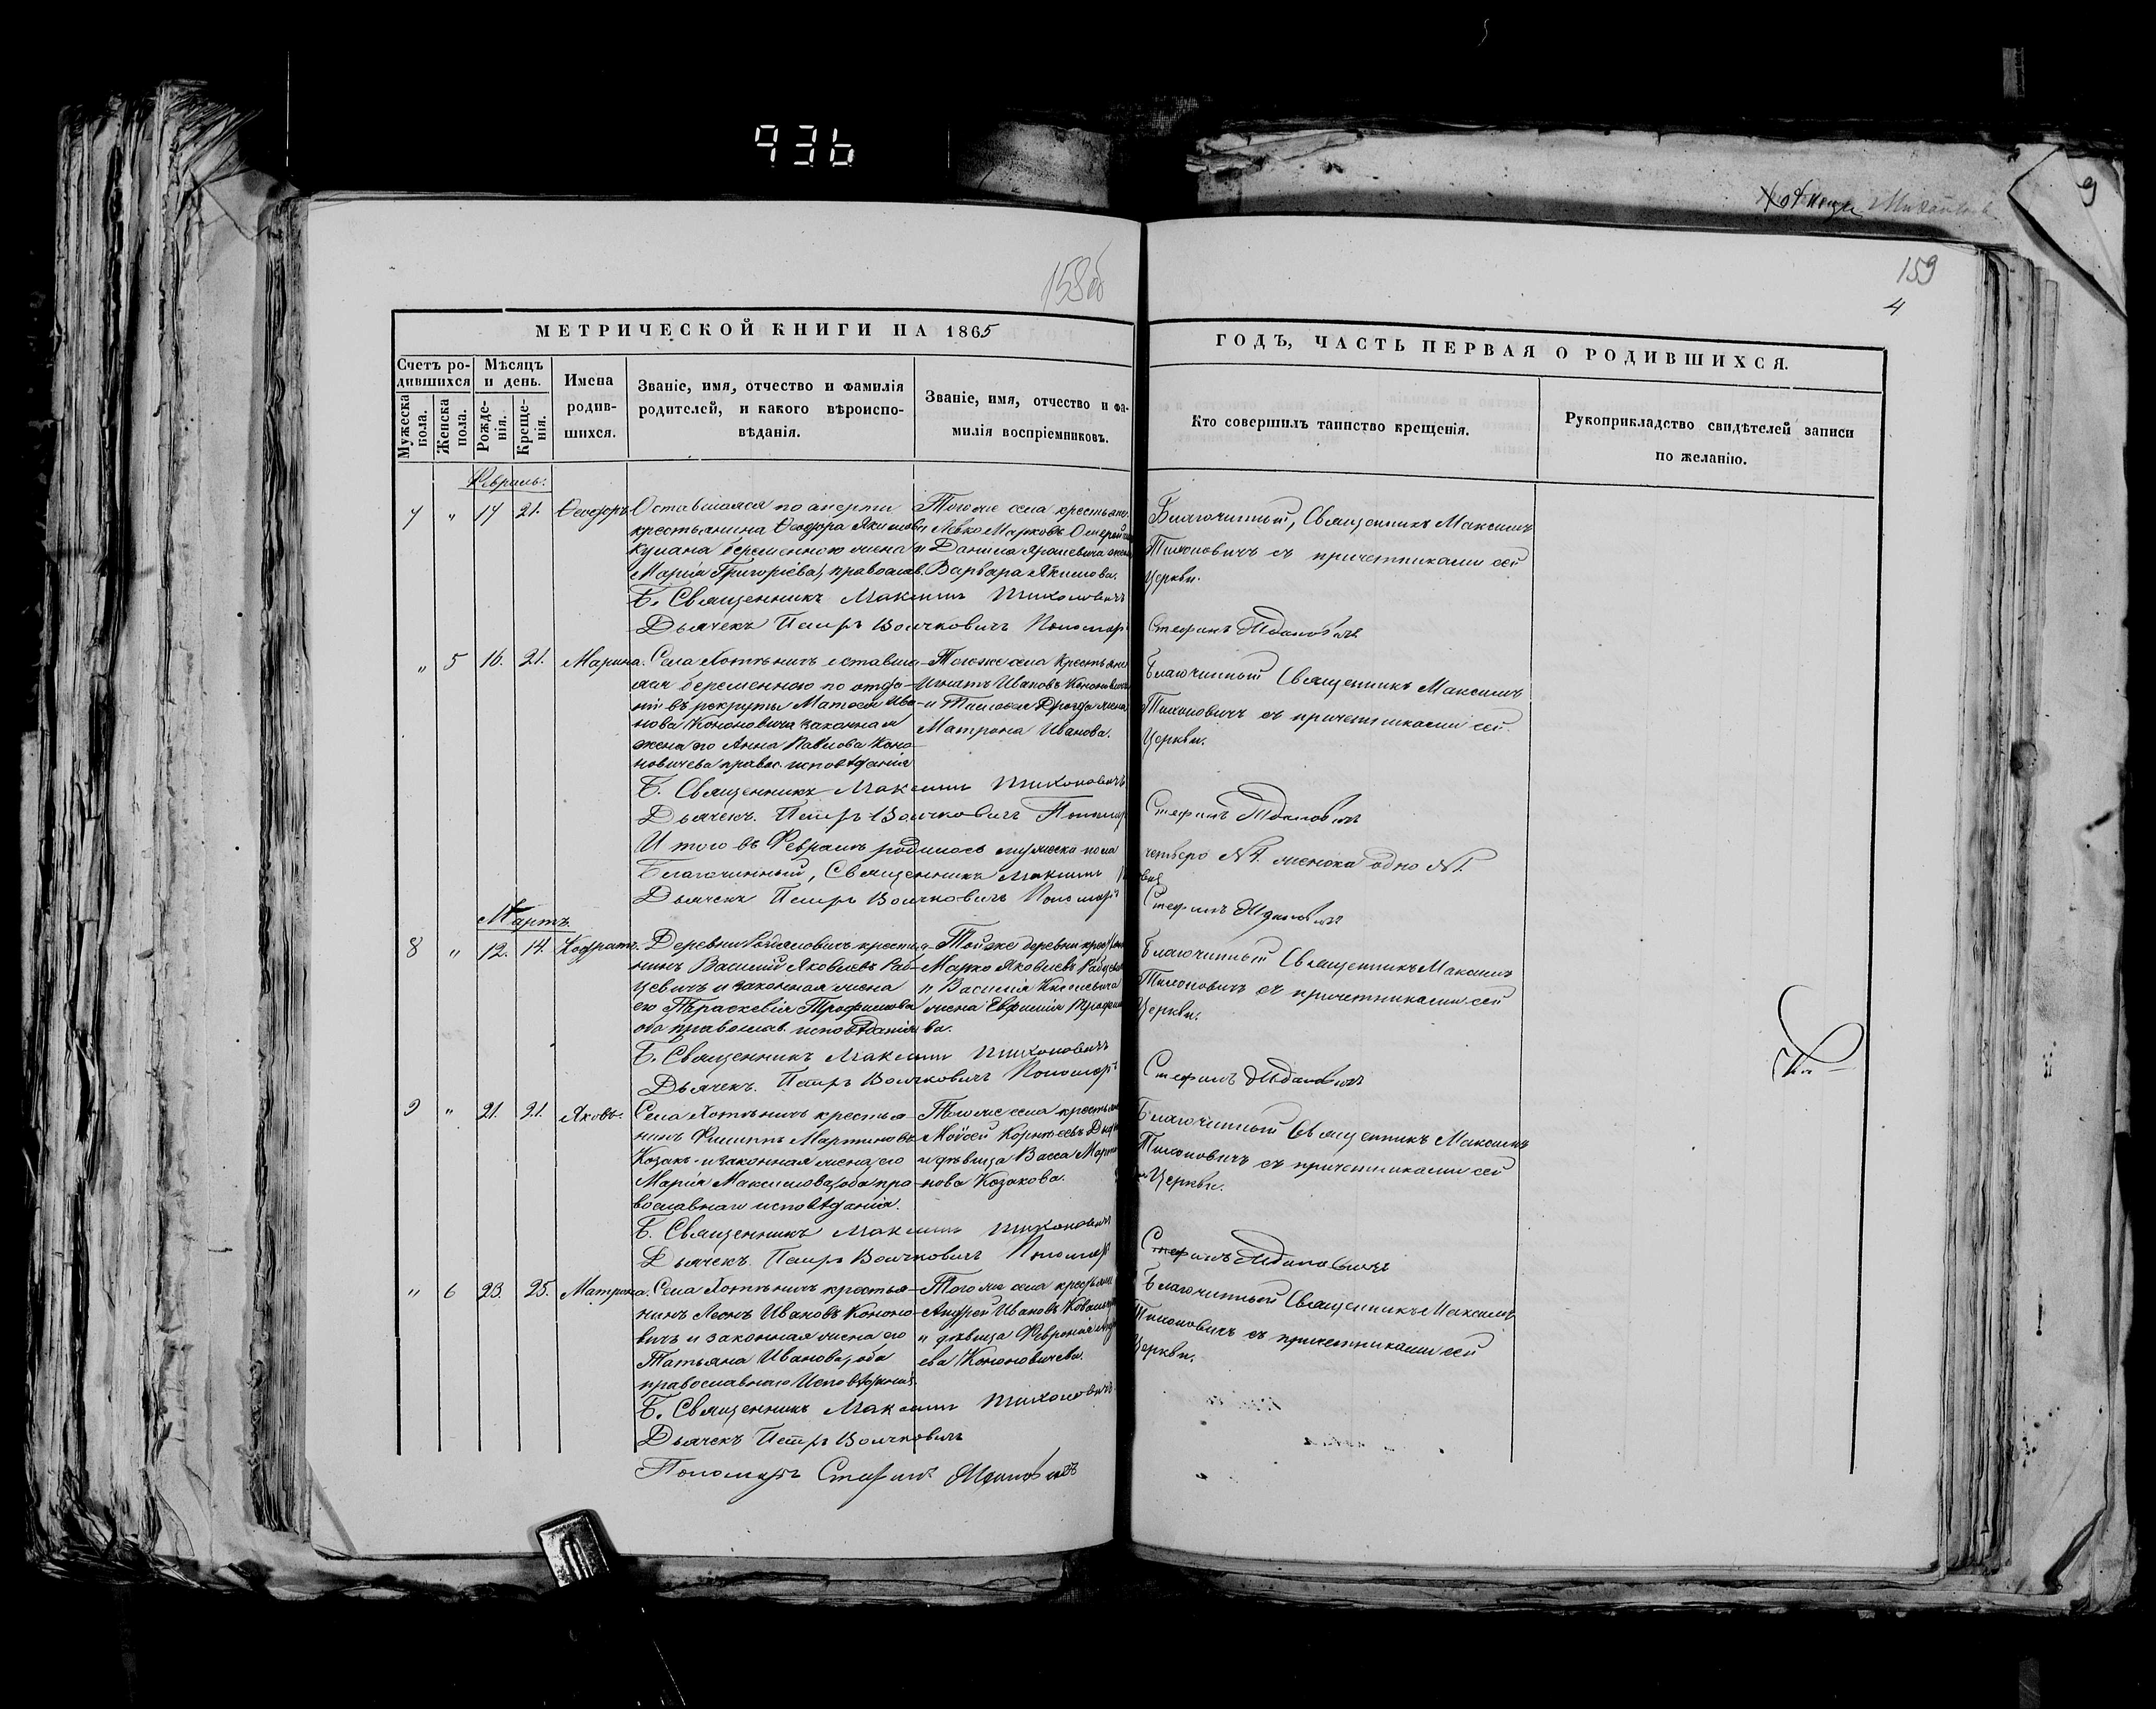 936
9
158об
159
4
МЕТРИЧЕСКОЙ КНИГИ НА 1865
ГОДЪ, ЧАСТЬ ПЕРВАЯ О РОДИВШИХСЯ.
Счетъ ро-
дившихся
Мужеска
пола.
Женска
пола.
Мѣсяцъ
и день.
Рожде-
нія.
Креще-
нія.
Имена
родив-
шихся.
Званіе, имя, отчество и фамилія
родителей, и какого вѣроиспо-
вѣданія.
Званіе, имя, отчество и фа-
милія воспріемниковъ.
Кто совершилъ таинство крещенія.
Рукоприкладство свидѣтелей записи
по желанію.
Февраль:
7 " 17 21. Ѳеодоръ
Оставшаяся по смерти
крестьянина Ѳеодора Якимова
беременною жена
Марія Григоріева, православ.
Того же села крестьяне
Левко Марковъ
и Данила жена
Варвара Якимова.
Благочинный, Священникъ Максимъ
Тихоновичъ съ причетниками сей
Церкви.
Б. Священникъ Максимъ Тихоновичъ
Дьячекъ Петръ Волчковичъ Пономарь
Стефанъ Ждановичъ
" 5 16. 21. Марина.
Села Хотѣничъ оставша-
яся беременною по отда-
чи въ рекруты Матѳея Ива-
нова Кононовича законная
жена его Анна Павлова Коно-
новичева правос. исповѣданія
Тогоже села Крестьяне
Игнатъ Ивановъ Кононовичъ
и Тимоѳея Дрозда жена
Матрона Иванова.
Благочинный Священникъ Максимъ
Тихоновичъ съ причетниками сей
Церкви.
Б. Священникъ Максимъ Тихоновичъ
Дьячекъ. Петръ Волчковичъ Пономарь
Стефанъ Ждановичъ
И того въ Февралѣ родилось мужеска пола
четверо №4. женска одно №1.
Благочинный, Священникъ Максимъ
Дьячекъ Петръ Волчковичъ Пономарь
Стефанъ Ждановичъ
Мартъ.
8 " 12. 14. Кодратъ.
Деревни крестья-
нинъ Василій Яковлевъ Раб-
цевичъ и законная жена
его Параскевія Трофимова
оба православ. исповѣданія
Той же деревни крестьяне
Марко Яковлевъ Рабцевичъ
и Василія жена Евфимія Трофимо-
ва.
Благочинный Священникъ Максимъ
Тихоновичъ съ причетниками сей
Церкви.
Б. Священникъ Максимъ Тихоновичъ
Дьячекъ. Петръ Волчковичъ Пономарь
Стефанъ Ждановичъ
9 " 21. 21. Яковъ.
Села Хотѣничъ крестья-
нинъ Филиппъ Мартиновъ
Козакъ и законная жена его
Марія Максимова, оба пра-
вославнаго исповѣданія.
Того же села крестьяне
Моѵсей Корнѣевъ
и дѣвица Васса Марти-
нова Козакова.
Благочинный Священникъ Максимъ
Тихоновичъ съ причетниками сей
Церкви.
Б. Священникъ Максимъ Тихоновичъ
Дьячекъ. Петръ Волчковичъ Пономарь
Стефанъ Ждановичъ
" 6 23. 25. Матрона.
Села Хотѣничъ крестья-
нинъ Леонъ Ивановъ Кононо-
вичъ и законная жена его
Татьяна Иванова, оба
православнаго Исповѣданія.
Того же села крестьяне
Андрей Ивановъ
и дѣвица Февронія Андре-
ева Кононовичева.
Благочинный Священникъ Максимъ
Тихоновичъ съ причетниками сей
Церкви.
Б. Священникъ Максимъ Тихоновичъ
Дьячекъ Петръ Волчковичъ
Пономарь Стефанъ Ждановичъ